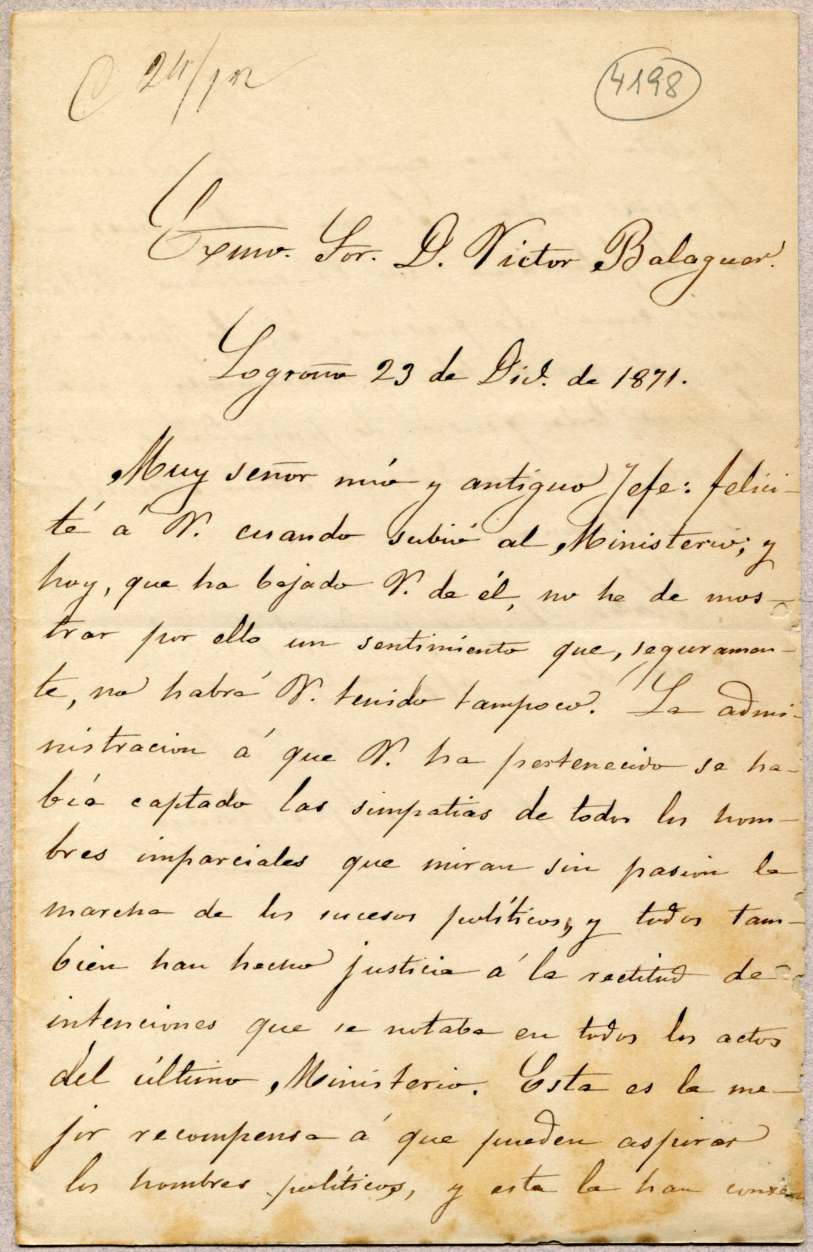 C 24/12
4198
Exmo. Sor. D. Victor Balaguer.
Logroño 23 de Dic. de 1871.
Muy señor mío y antiguo Jefe: felici-
té á V. cuando subió al Ministerio; y
hoy, que ha bajado V. de él, no he de mos-
trar por ello un sentimiento que, seguramen-
te, no habrá V. tenido tampoco. La admi-
nistracion á que V. ha pertenecido se ha-
bía captado las simpatias de todos los hom-
bres imparciales que miran sin pasion la
marcha de los sucesos políticos, y todos tam-
bien han hecho justicia á la rectitud de
intenciones que se notaba en todos los actos
del último Ministerio. Esta es la me-
jor recompensa á que pueden aspirar
los hombres políticos, y esta la han